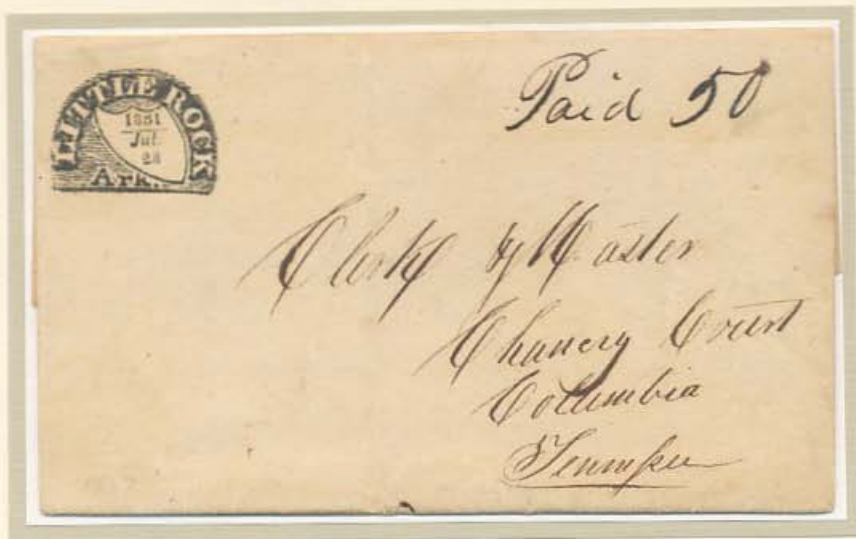 LITTLE ROCK
1851
Jul.
28
Ark.
Paid 50
Clerk & Master
Chancery Court
Columbia
Tennessee